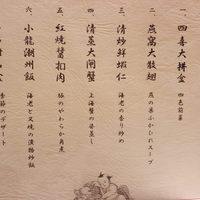 一、四喜大拼盆
四色前菜
二、燕窩大散翅
燕の巣ふかひれスープ
三、清炒鮮蝦仁
海老の香り炒め
四、清蒸大閘蟹
上海蟹の姿蒸し
五、紅燒醬扣肉
豚のやわらか角煮
六、小龍潮州飯
海老と叉焼の漬物炒飯
季節のデザート